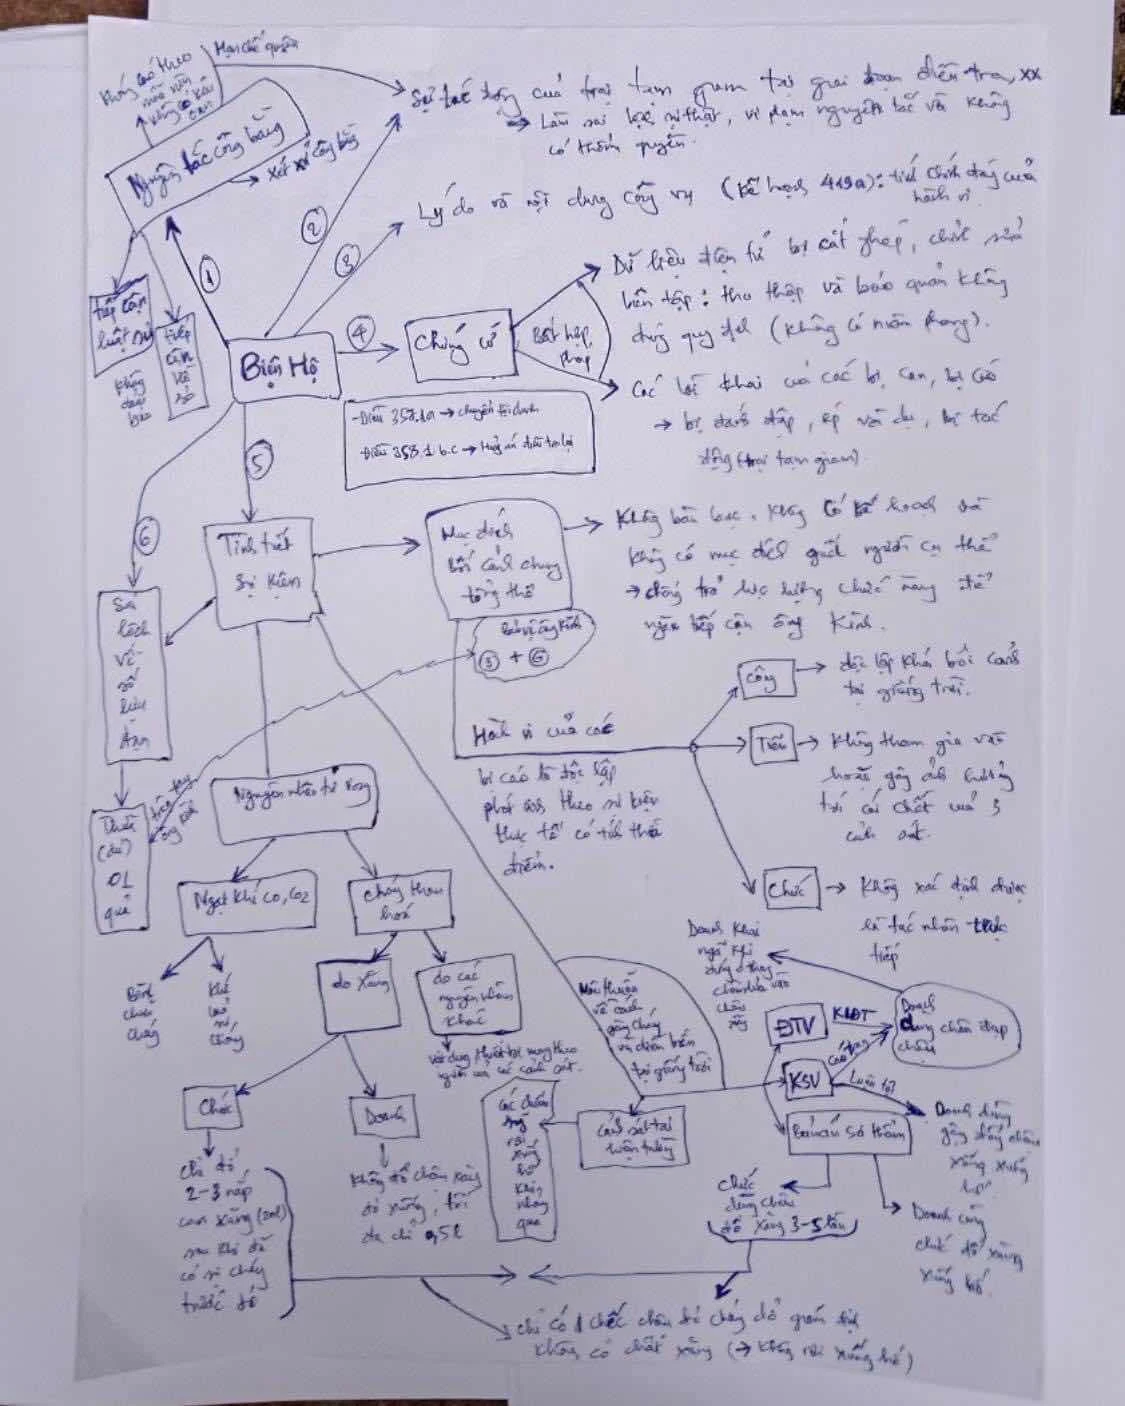 Hạn chế quyền
Không theo
Nguyên tắc công bằng
→ xét xử công bằng
tiếp cận
luật sư
tiếp
cận
hồ
sơ
không
đảm
bảo
①
②
③
④
⑤
⑥
Sự tác động của trại tạm giam tại giai đoạn điều tra, xx
→ Làm sai lệch sự thật, vi phạm nguyên tắc và không
có thẩm quyền.
Lý do và nội dung công vụ (kế hoạch 419a): tính chính đáng của
hành vi
Biện Hộ
Chứng cứ
Bất hợp
pháp
Dữ liệu điện tử bị cắt ghép, chỉnh sửa
biên tập: thu thập và bảo quản không
đúng quy định (không có niêm phong).
Các lời khai của các bị can, bị cáo
→ bị đánh đập, ép và dụ, bị tác
động (trại tạm giam).
- Điều 358.1a → chuyển tội danh
- Điều 358.1 b.c → Huỷ án điều tra lại
Tình tiết
Sự kiện
Mục đích
Bối cảnh chung
tổng thể
→ Không bàn bạc, không có kế hoạch và
không có mục đích giết người cụ thể
→ chống trả lực lượng chức năng để
ngăn tiếp cận ông Kình.
Bảo vệ ông Kình
⑤ + ⑥
Sai
lệch
về
số
lựu
đạn
Thiếu
(dư)
01
quả
trên tay
ông Kình
Hành vi của các
bị cáo là độc lập
phát sinh theo sự kiện
thực tế có tính thời
điểm.
Công → độc lập khỏi bối cảnh
tại giếng trời.
Tiến → Không tham gia vào
hoặc gây ảnh hưởng
tới cái chết của 3
cảnh sát.
Chức → Không xác định được
là tác nhân trực
tiếp
Nguyên nhân tử vong
Ngạt khí CO, CO2
Bình
chữa
cháy
Khí
do
sự
cháy
Cháy than
hoá
do xăng
do các
nguyên nhân
khác
vật dụng thiết bị mang theo
người của các cảnh sát.
Chức
chỉ đổ
2-3 nắp
can xăng
sau khi đã
có sự cháy
trước đó
Doanh
không đổ chậu xăng
đó xuống, tối
đa chỉ 0,5l
Mâu thuẫn
về cách
gây cháy
và diễn biến
tại giếng trời
Cảnh sát tại
hiện trường
các chiến
sỹ
rơi
xuống
hố
không
nhảy
qua
ĐTV
KLĐT
KSV
Cáo trạng
Luận tội
Bản án sơ thẩm
Doanh
dùng chân đạp
chậu
Doanh khai
ngã khi
đứng ở thang
chân đạp vào
chậu
xăng
Doanh dùng
gậy đẩy chậu
xăng xuống
hố
Doanh cùng
Chức đổ xăng
xuống hố.
Chức
dùng chậu
đổ xăng 3-5 lần
chỉ có 1 chiếc chậu đã cháy đỏ giám định
không có chất xăng (→ không rơi xuống hố)